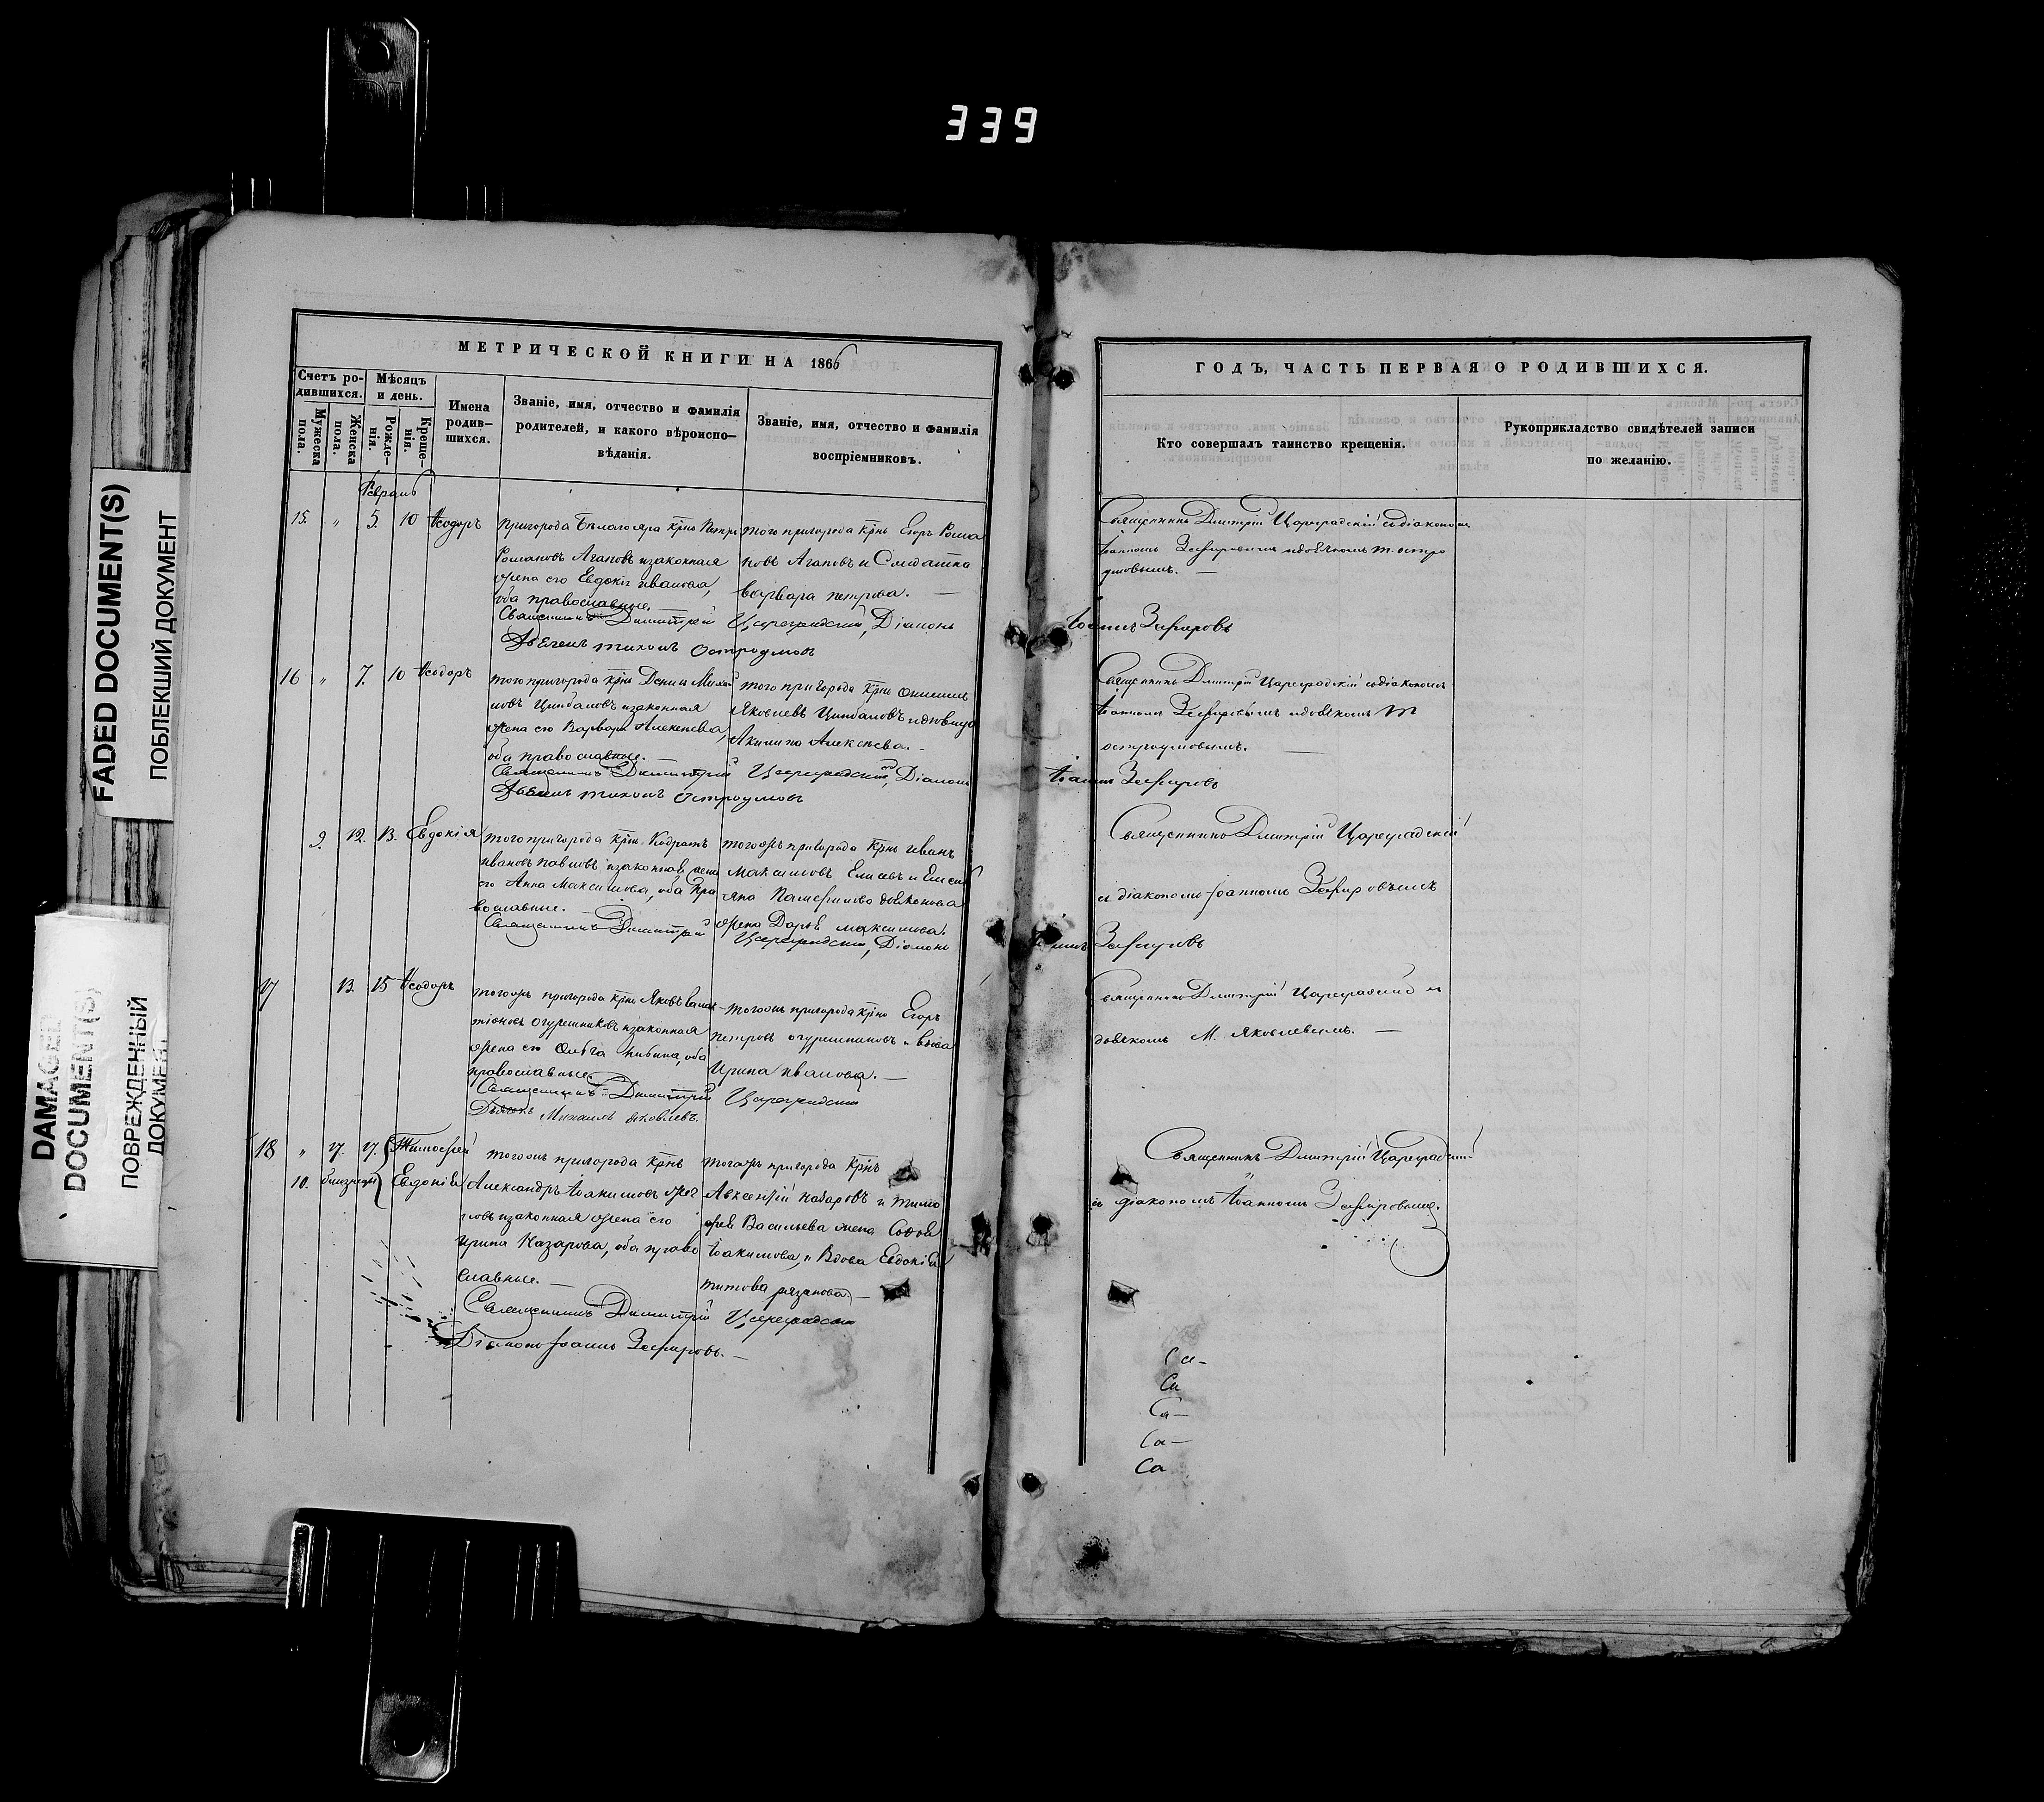 339
FADED DOCUMENT(S)
ПОБЛЕКШИЙ ДОКУМЕНТ
DAMAGED DOCUMENT(S)
ПОВРЕЖДЕННЫЙ ДОКУМЕНТ
МЕТРИЧЕСКОЙ КНИГИ НА 1866
Счетъ ро-
дившихся.
Мужеска пола.
Женска пола.
Мѣсяцъ
и день.
Рожде-
нія.
Креще-
нія.
Имена
родив-
шихся.
Званіе, имя, отчество и фамилія
родителей, и какого вѣроиспо-
вѣданія.
Званіе, имя, отчество и фамилія
воспріемниковъ.
Февраль
15. " 5. 10 Ѳеодоръ
пригорода Бѣлаго яра крнъ Петръ
Романовъ Агаповъ и законная
жена его Евдокія Иванова,
оба православные.
того пригорода крнъ Егоръ Рома
новъ Агаповъ и Солдатка
Варвара Петрова. —
Священникъ Димитрій Цареградскій, Діаконъ
Дьячекъ Тихонъ Остроумовъ
16 " 7. 10 Ѳеодоръ
того пригорода крнъ Денисъ Михай
ловъ Цынбаловъ и законная
жена его Варвара Алексѣева,
оба православные.
того пригорода крнъ
Яковлевъ Цынбаловъ и вдовица
Акилина Алексѣева. -
Священникъ Димитрій Цареградскій, Діаконъ
Дьячекъ Тихонъ Остроумовъ
9. 12. 13. Евдокія
того пригорода крнъ Кодратъ
Ивановъ Павловъ и законная жена
его Анна Максимова, оба пра
вославные.
тогожъ пригорода крнъ Иванъ
Максимовъ Елисѣевъ и
жена Дарья Максимова.
Священникъ Димитрій Цареградскій, Діаконъ
17 13. 15 Ѳеодоръ
тогожъ пригорода крнъ Яковъ
Огурешниковъ и законная
жена его Ольга оба
православные.
тогожъ пригорода крнъ Егоръ
Петровъ Огурешниковъ и
Ирина Иванова. —
Священникъ Димитрій Цареградскій
Дьячекъ Михаилъ Яковлевъ.
18 " 17. 17. Тимофей
10. близнецы Евдокія
тогожъ пригорода крнъ
Александръ Іоакимовъ
и законная жена его
Ирина Назарова, оба право
славные. —
тогожъ пригорода крнъ
Авксентій Назаровъ и Тимо
фея Васильева жена Софія
Іоакимова, и Вдова Евдокія
Титова Рязанова. —
Священникъ Димитрій Цареградскій
Діаконъ Іоаннъ Зефировъ. —
ГОДЪ, ЧАСТЬ ПЕРВАЯ О РОДИВШИХСЯ.
Кто совершалъ таинство крещенія.
Рукоприкладство свидѣтелей записи
по желанію.
Священникъ Димитрій Цареградскій съ діакономъ
Іоанномъ Зефировымъ и дьячкомъ Т. Остро
умовымъ. —
Іоаннъ Зефировъ
Священникъ Димитрій Цареградскій съ діакономъ
Іоанномъ Зефировымъ и дьячкомъ Т
Остроумовымъ. —
Іоаннъ Зефировъ
Священникъ Дмитрій Цареградскій
съ діакономъ Іоанномъ Зефировымъ
Іоаннъ Зефировъ
Священникъ Дмитрій Цареградскій съ
дьячкомъ М. Яковлевымъ. —
Священникъ Дмитрій Цареградскій
съ діакономъ Іоанномъ Зефировымъ.